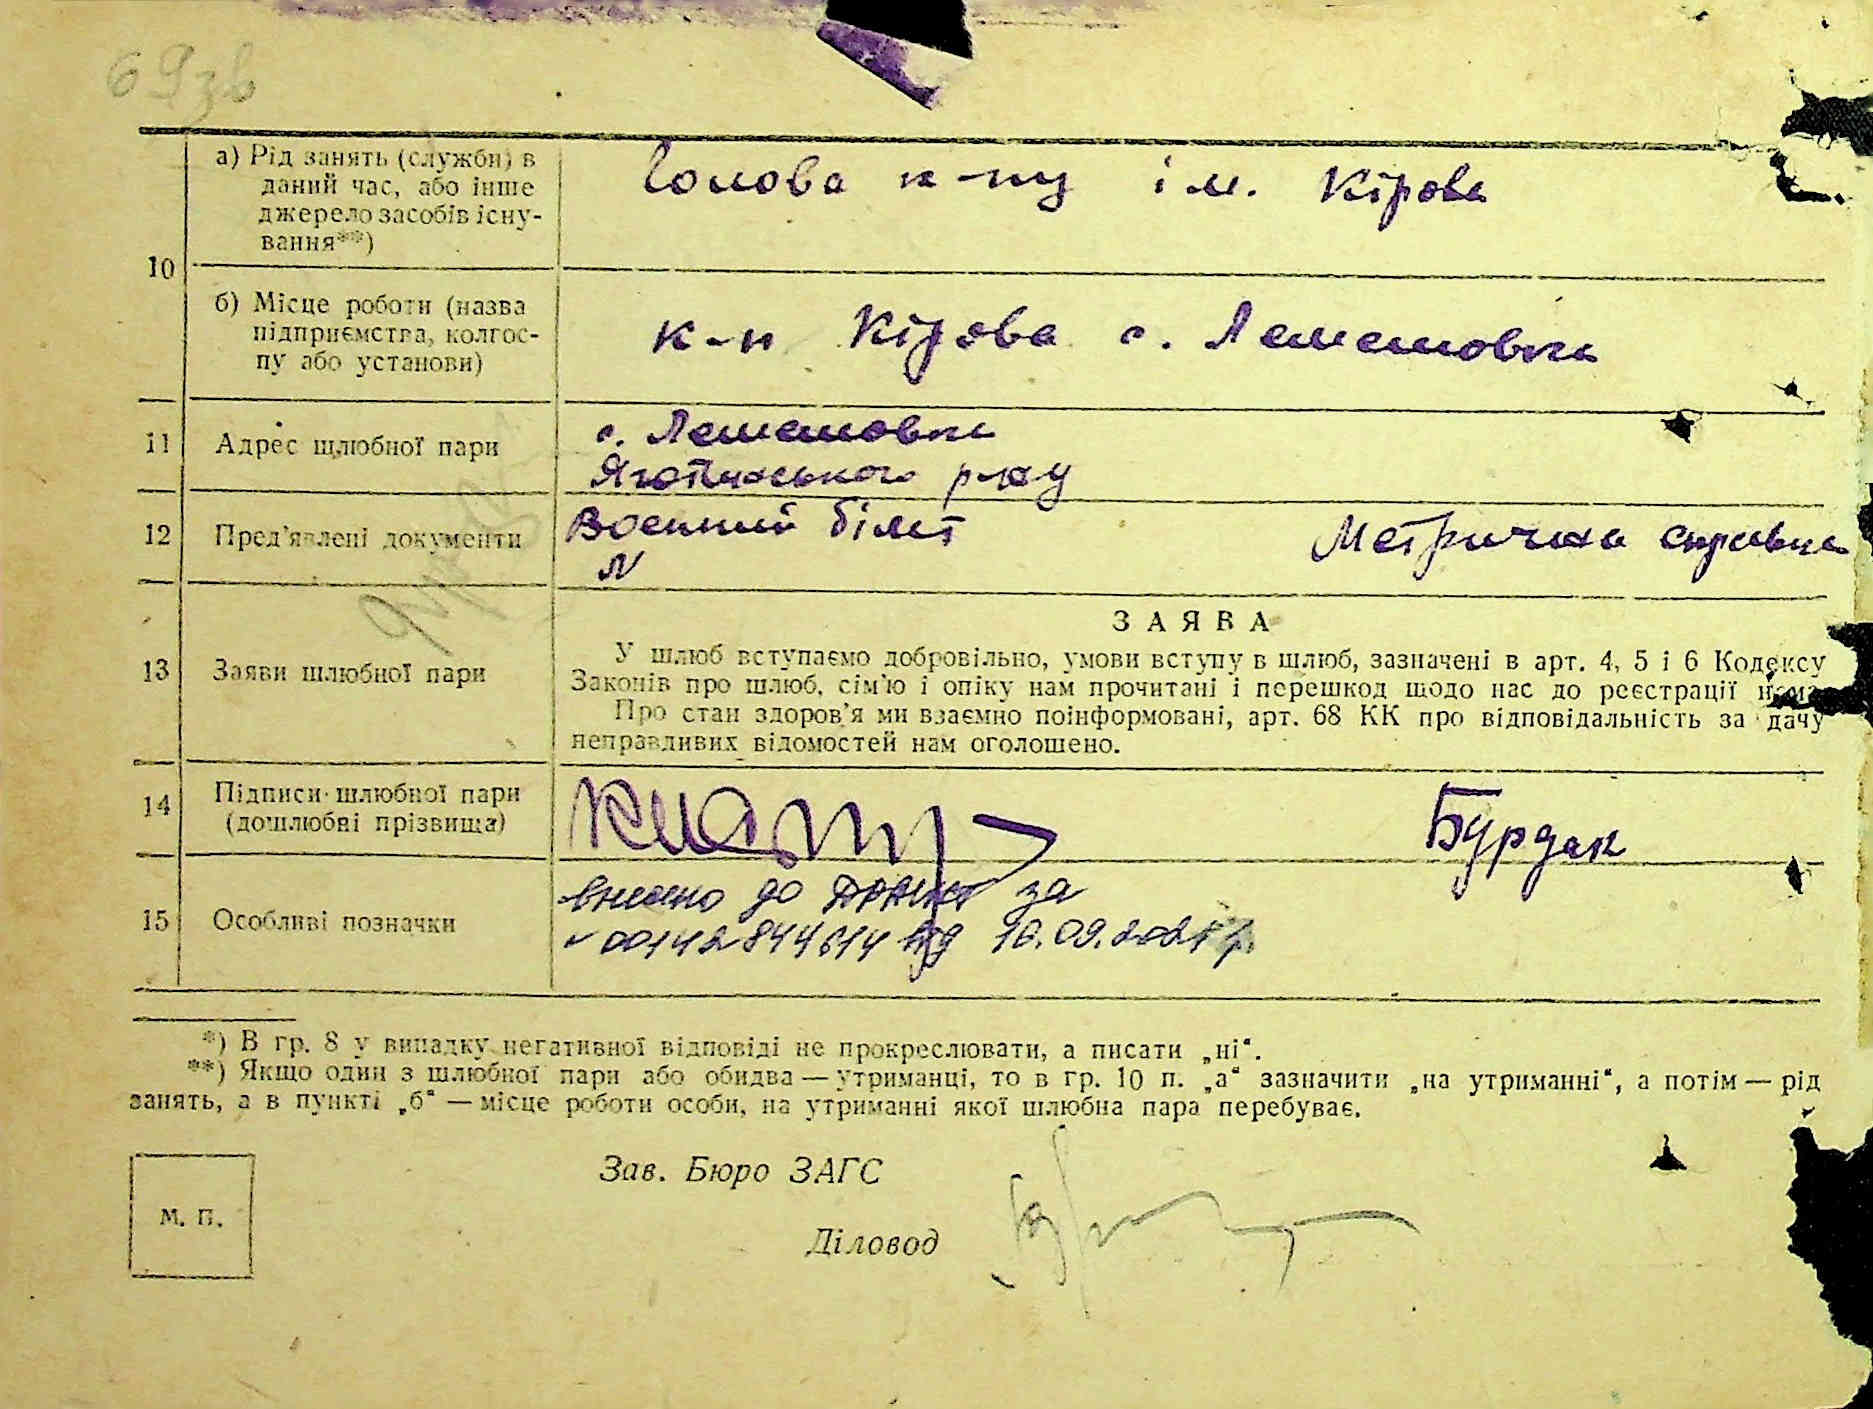 69зв
а) Рід занять (служби) в
даний час, або інше
джерело засобів існу-
вання**)
Голова к-пу ім. Кірова
10
б) Місце роботи (назва
підприємства, колгос-
пу або установи)
к-п Кірова с. Лемешовка
11 Адрес шлюбної пари
с. Лемешовка
Яготинського р-ну
12 Пред'явлені документи
Воєнний білет
N
Метрична справка
13 Заяви шлюбної пари
ЗАЯВА
У шлюб вступаємо добровільно, умови вступу в шлюб, зазначені в арт. 4, 5 і 6 Кодексу
Законів про шлюб, сім'ю і опіку нам прочитані і перешкод щодо нас до реєстрації нема.
Про стан здоров'я ми взаємно поінформовані, арт. 68 КК про відповідальність за дачу
неправдивих відомостей нам оголошено.
14 Підписи шлюбної пари
(дошлюбні прізвища)
Бурдак
15 Особливі позначки
внесено до ДРАЦСГ за
№ 00142844614 від 10.09.2021 р.
*) В гр. 8 у випадку негативної відповіді не прокреслювати, а писати „ні“.
**) Якщо один з шлюбної пари або обидва — утриманці, то в гр. 10 п. „а“ зазначити „на утриманні“, а потім — рід
занять, а в пункті „б“ — місце роботи особи, на утриманні якої шлюбна пара перебуває.
Зав. Бюро ЗАГС
М. П.
Діловод